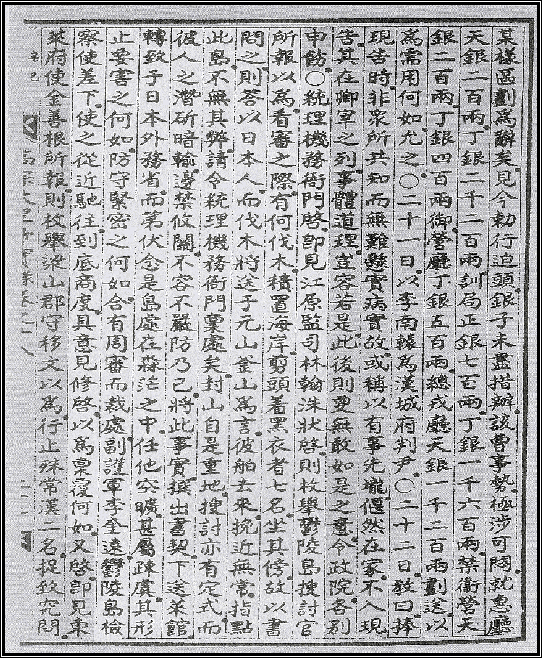 某樣區劃爲辭矣見今勅行迫頭銀子未盡措辦該曹事勢極涉可悶就惠廳
天銀二百兩丁銀二千二百兩訓局正銀七百兩丁銀一千六百兩禁衛營天
銀二百兩丁銀四百兩御營廳丁銀五百兩總戎廳天銀一千二百兩劃送以
爲需用何如允之○二十一日以李南輅爲漢城府判尹○二十二日敎曰捧
現告時非衆所共知而無難懸實病實故或稱以有事先壠偃然在家不入現
告其在卿宰之列事體道理豈容若是此後則要無敢如是之意令政院各別
申飭○統理機務衙門啓卽見江原監司林翰洙狀啓則枚擧鬱陵島搜討官
所報以爲看審之際有何伐木積置海岸剪頭着黑衣者七名坐其傍故以書
問之則答以日本人而伐木將送于元山釜山爲言彼舶去來挽近無常指點
此島不無其弊請令統理機務衙門稟處矣封山自是重地搜討亦有定式而
彼人之潛斫暗輸邊禁攸關不容不嚴防乃已將此事實撰出書契下送萊館
轉致于日本外務省而第伏念是島處在淼茫之中任他空曠甚屬疎虞其形
止要害之何如防守緊密之何如合有周審而裁處副護軍李奎遠鬱陵島檢
察使差下使之從近馳往到底商度具意見修啓以爲稟覆何如又啓卽見東
萊府使金善根所報則枚擧梁山郡守移文以爲行止殊常漢二名捉致究問
辛巳